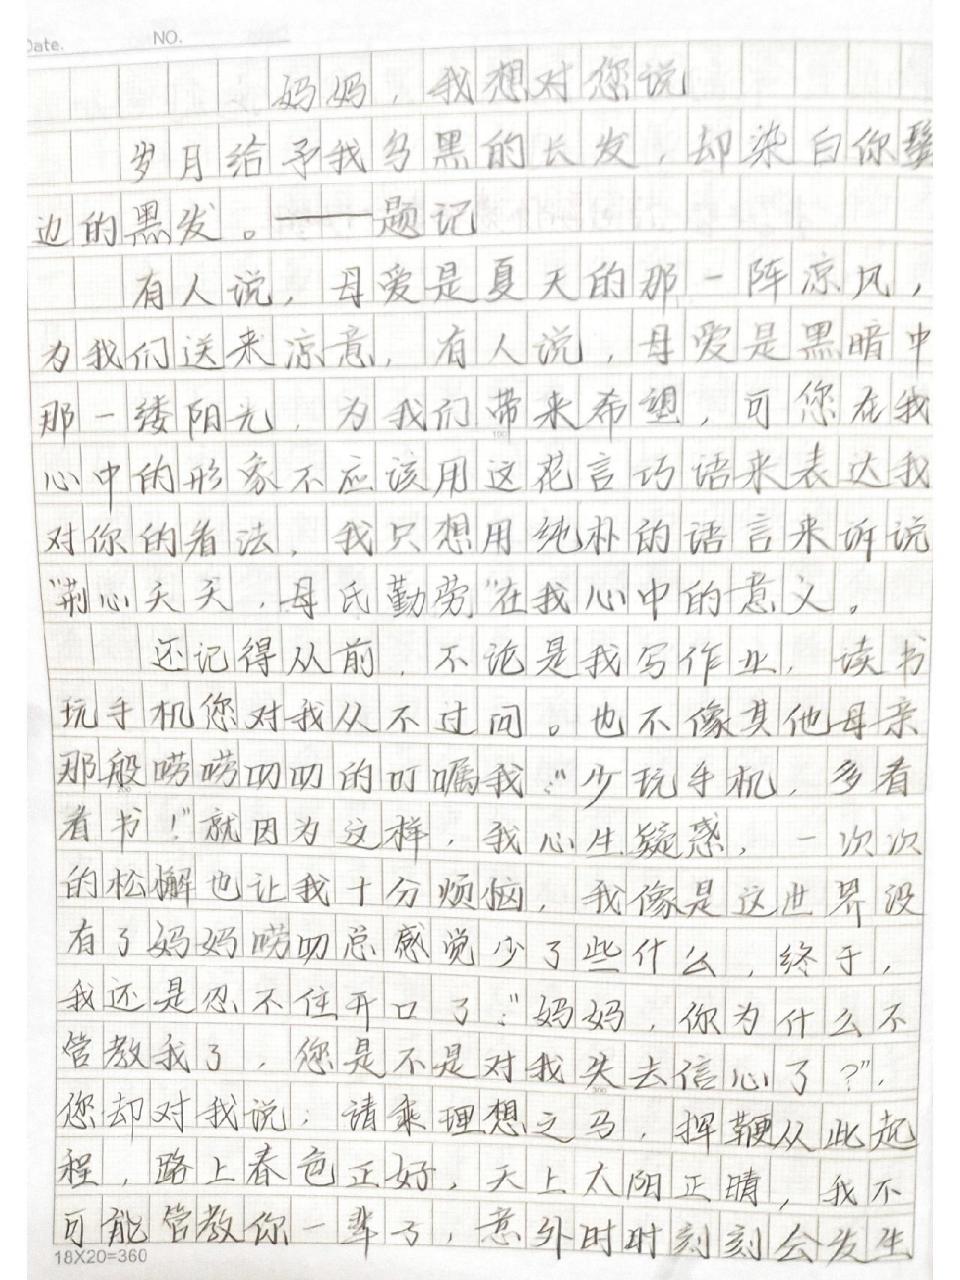 Date.
NO.
妈妈，我想对您说
岁月给予我乌黑的长发，却染白你鬓
边的黑发。——题记
有人说，母爱是夏天的那一阵凉风，
为我们送来凉意，有人说，母爱是黑暗中
那一缕阳光，为我们带来希望，可您在我
心中的形象不应该用这花言巧语来表达我
对你的看法，我只想用纯朴的语言来诉说
“荆心天天，母氏勤劳”在我心中的意义。
还记得从前，不论是我写作业，读书
玩手机您对我从不过问。也不像其他母亲
那般唠唠叨叨的叮嘱我：“少玩手机，多看
看书！”就因为这样，我心生疑惑，一次次
的松懈也让我十分烦恼，我像是这世界没
有了妈妈唠叨总感觉少了些什么，终于，
我还是忍不住开口了：“妈妈，你为什么不
管教我了，您是不是对我失去信心了？”，
您却对我说：请乘理想之马，挥鞭从此起
程，路上春色正好，天上太阳正晴，我不
可能管教你一辈子，意外时时刻刻会发生
18X20=360